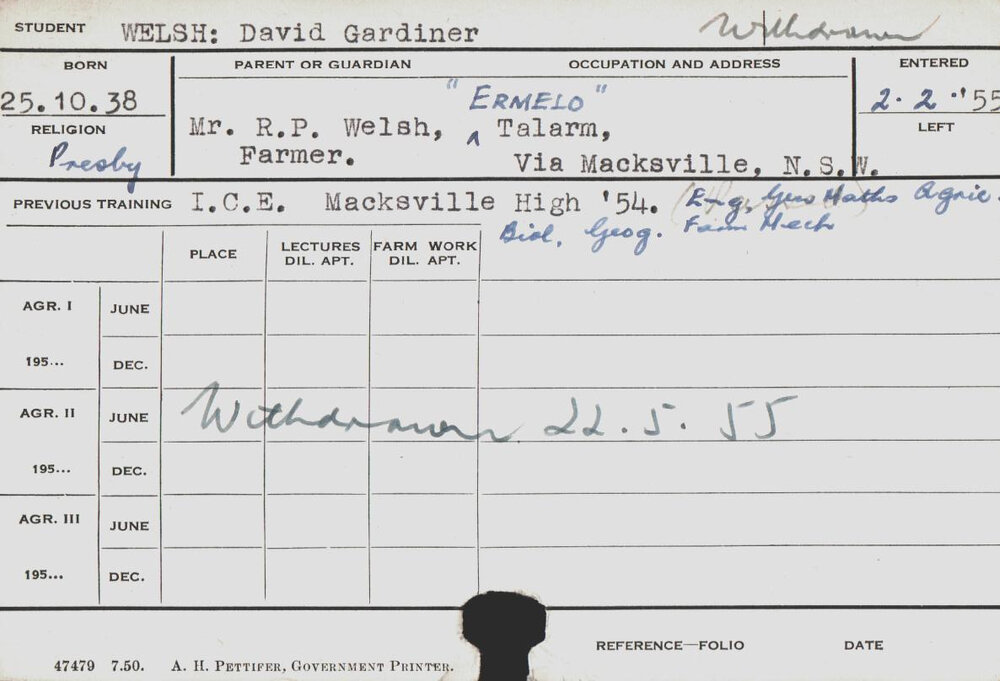 STUDENT WELSH: David Gardiner Withdrawn
BORN PARENT OR GUARDIAN OCCUPATION AND ADDRESS ENTERED
25.10.38 "ERMELO" 2.2.'55
RELIGION Mr. R.P. Welsh, ^ Talarm, LEFT
Presby Farmer. Via Macksville, N.S.W.
PREVIOUS TRAINING I.C.E. Macksville High '54. Eng, Gen Maths Agric.
Biol, Geog. Farm Mech
PLACE LECTURES DIL. APT. FARM WORK DIL. APT.
AGR. I JUNE
195... DEC.
AGR. II JUNE Withdrawn 22.5.55
195... DEC.
AGR. III JUNE
195... DEC.
REFERENCE—FOLIO DATE
47479 7.50. A. H. PETTIFER, GOVERNMENT PRINTER.